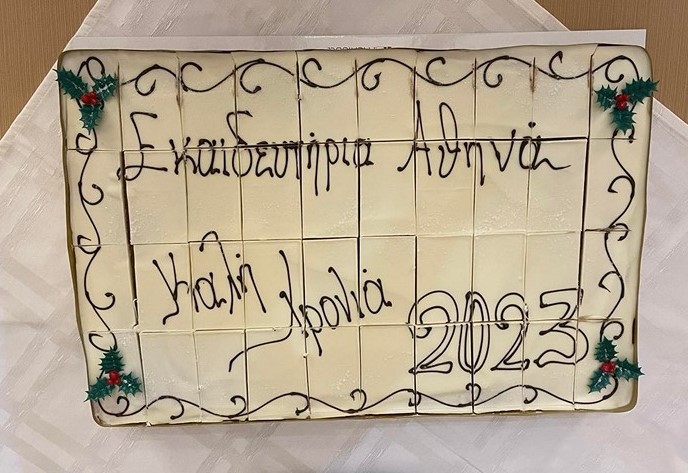 Εκαιδευτήρια Αθηνά
Καλή Χρονιά
2023